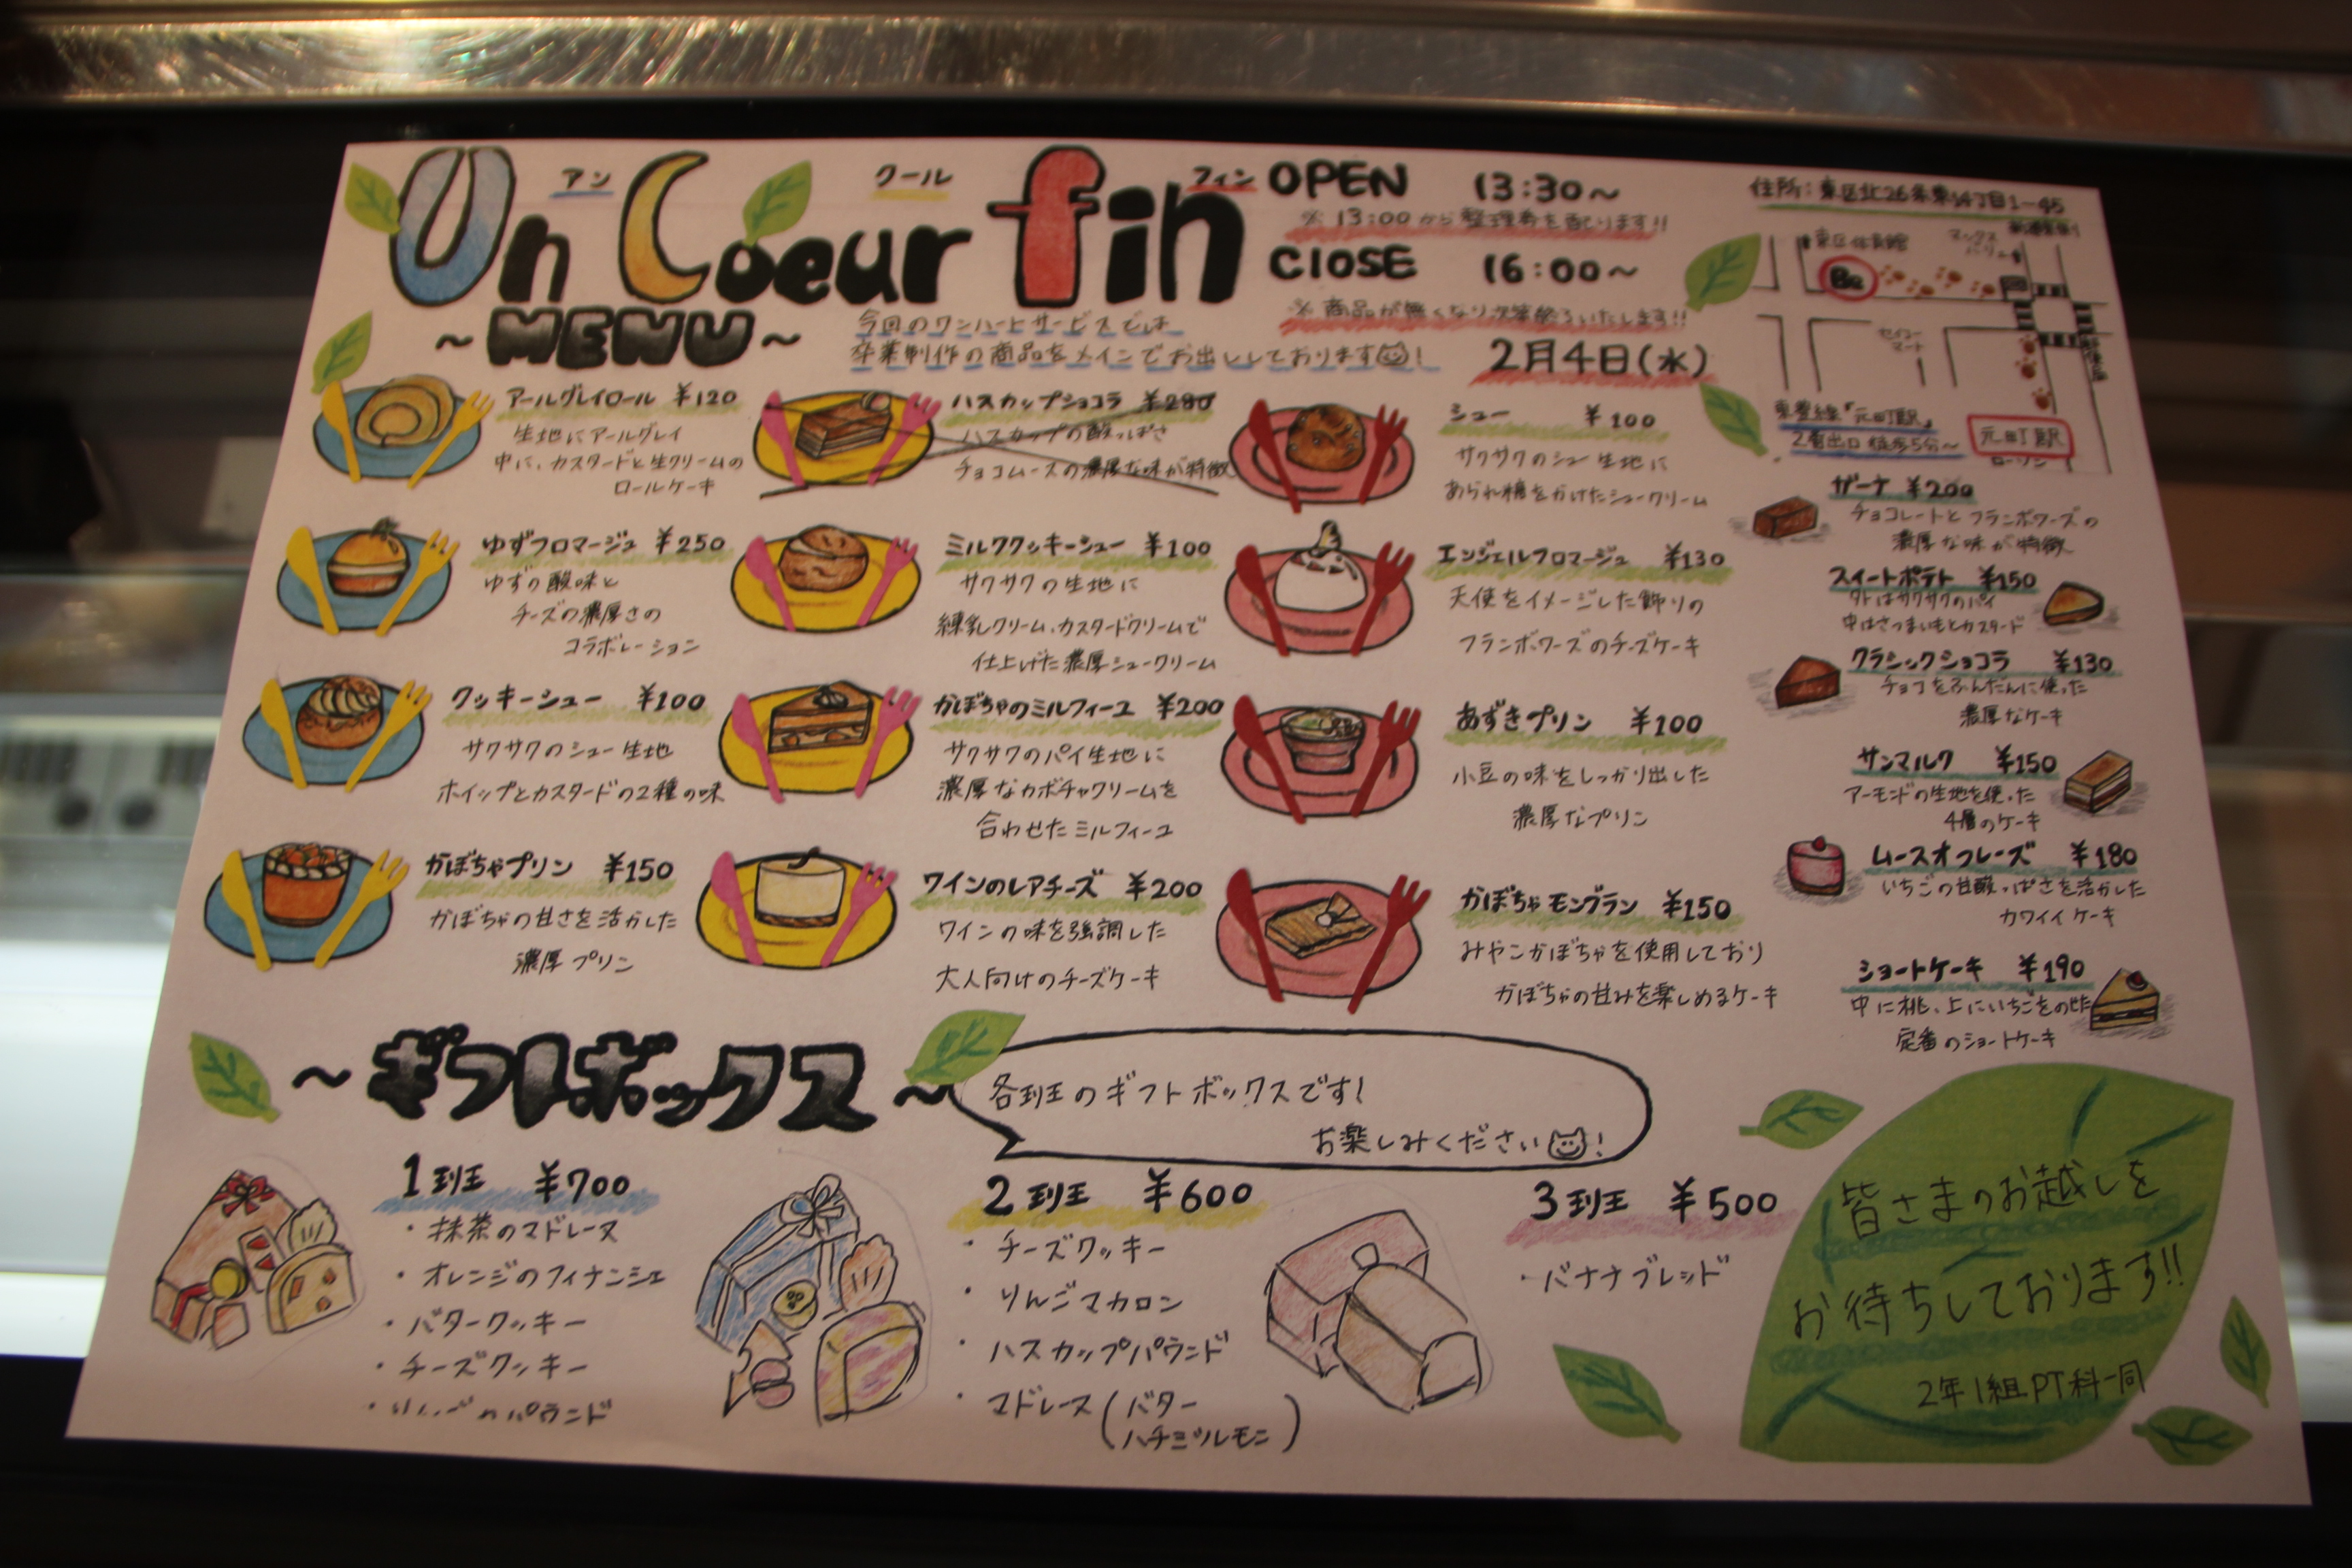 アン クール フィン
Un Coeur fin
OPEN 13:30～
※ 13:00から整理券を配ります!!
CLOSE 16:00～
※ 商品が無くなり次第終了いたします!!
2月4日(水)
～MENU～
今回のワンハートサービスでは
卒業制作の商品をメインでお出ししております!
住所:東区北26条東14丁目1-45
東区体育館
マックスバリュー
Be
セイコーマート
東豊線「元町駅」
2番出口 徒歩5分～
元町駅
ローソン
アールグレイロール ¥120
生地にアールグレイ
中に、カスタードと生クリームの
ロールケーキ
ゆずフロマージュ ¥250
ゆずの酸味と
チーズの濃厚さの
コラボレーション
クッキーシュー ¥100
サクサクのシュー生地
ホイップとカスタードの2種の味
かぼちゃプリン ¥150
かぼちゃの甘さを活かした
濃厚プリン
ハスカップショコラ ¥280
ハスカップの酸っぱさ
チョコムースの濃厚な味が特徴
ミルククッキーシュー ¥100
サクサクの生地に
練乳クリーム、カスタードクリームで
仕上げた濃厚シュークリーム
かぼちゃのミルフィーユ ¥200
サクサクのパイ生地に
濃厚なカボチャクリームを
合わせたミルフィーユ
ワインのレアチーズ ¥200
ワインの味を強調した
大人向けのチーズケーキ
シュー ¥100
サクサクのシュー生地に
あられ糖をかけたシュークリーム
エンジェルフロマージュ ¥130
天使をイメージした飾りの
フランボワーズのチーズケーキ
あずきプリン ¥100
小豆の味をしっかり出した
濃厚なプリン
かぼちゃモンブラン ¥150
みやこかぼちゃを使用しており
かぼちゃの甘みを楽しめるケーキ
ザーナ ¥200
チョコレートとフランボワーズの
濃厚な味が特徴
スイートポテト ¥150
外はサクサクのパイ
中はさつまいもとカスタード
クラシックショコラ ¥130
チョコをふんだんに使った
濃厚なケーキ
サンマルク ¥150
アーモンドの生地を使った
4層のケーキ
ムースオフレーズ ¥180
いちごの甘酸っぱさを活かした
カワイイケーキ
ショートケーキ ¥190
中に桃、上にいちごをのせた
定番のショートケーキ
～ギフトボックス～
各班のギフトボックスです!
お楽しみください!
1班 ¥700
・抹茶のマドレーヌ
・オレンジのフィナンシェ
・バタークッキー
・チーズクッキー
・りんごのパウンド
2班 ¥600
・チーズクッキー
・りんごマカロン
・ハスカップパウンド
・マドレーヌ(バター
ハチミツレモン)
3班 ¥500
・バナナブレッド
皆さまのお越しを
お待ちしております!!
2年1組PT科一同